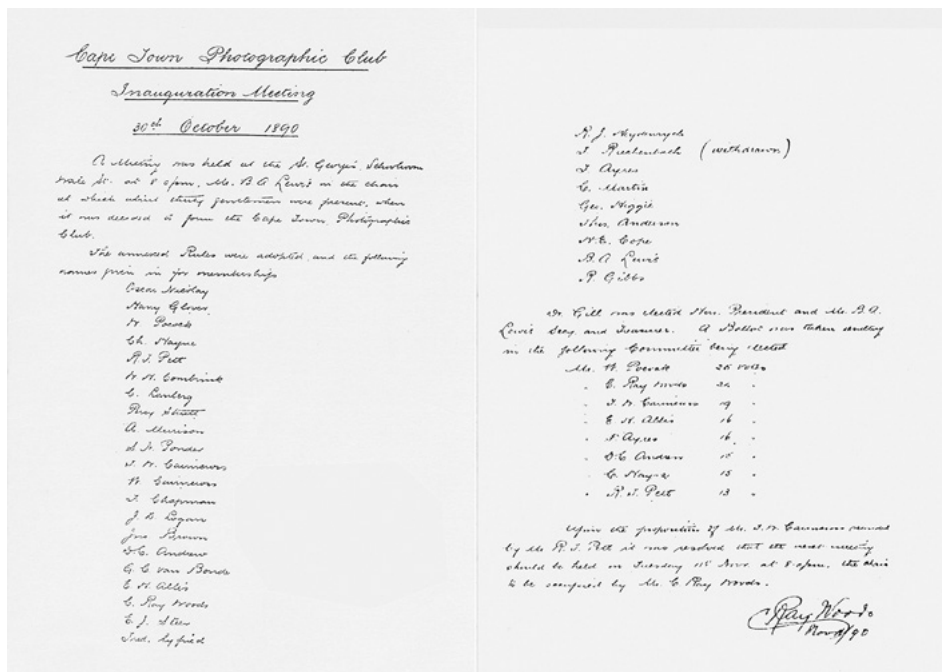 Cape Town Photographic Club
Inauguration Meeting
30th October 1890
A Meeting was held at the St. George's Schoolroom
Wale St. at 8 o'pm, Mr. B.A. Lewis in the chair
at which thirty gentlemen were present, when
it was decided to form the Cape Town Photographic
Club.
The annexed Rules were adopted, and the following
names given in for memberships
Oscar Nicolay
Harry Glover
W. Pocock
Ch. Hayne
R.J. Pett
W. H. Combrink
C. Ranberg
Percy
A. Murrison
Ponder
J. W.
W.
T. Chapman
J. D. Logan
Jno. Brown
D.C. Andrew
G. C. van Bonde
E. H. Allis
C. Ray Woods
E. J. Steer
Fred.
R. J.
(withdrawn)
J. Ayres
C. Martin
Geo.
Thos. Anderson
N.E. Cope
B. A. Lewis
R. Gibbs
Dr. Gill was elected Hon. President and Mr. B.A.
Lewis Secy. and Treasurer. A Ballot was taken resulting
in the following Committee being elected
Mr. W. Pocock 25 votes
" C. Ray Woods 24 "
" J. W. 19 "
" E. H. Allis 16 "
" J. Ayres 16 "
" D.C. Andrew 15 "
" C. Hayne 15 "
" R. J. Pett 13 "
Upon the proposition of Mr. J. W. seconded
by Mr. R. J. Pett it was resolved that the next meeting
should be held on Tuesday Nov. at 8 o'pm, the chair
to be occupied by Mr. C. Ray Woods.
C Ray Woods
Nov /90